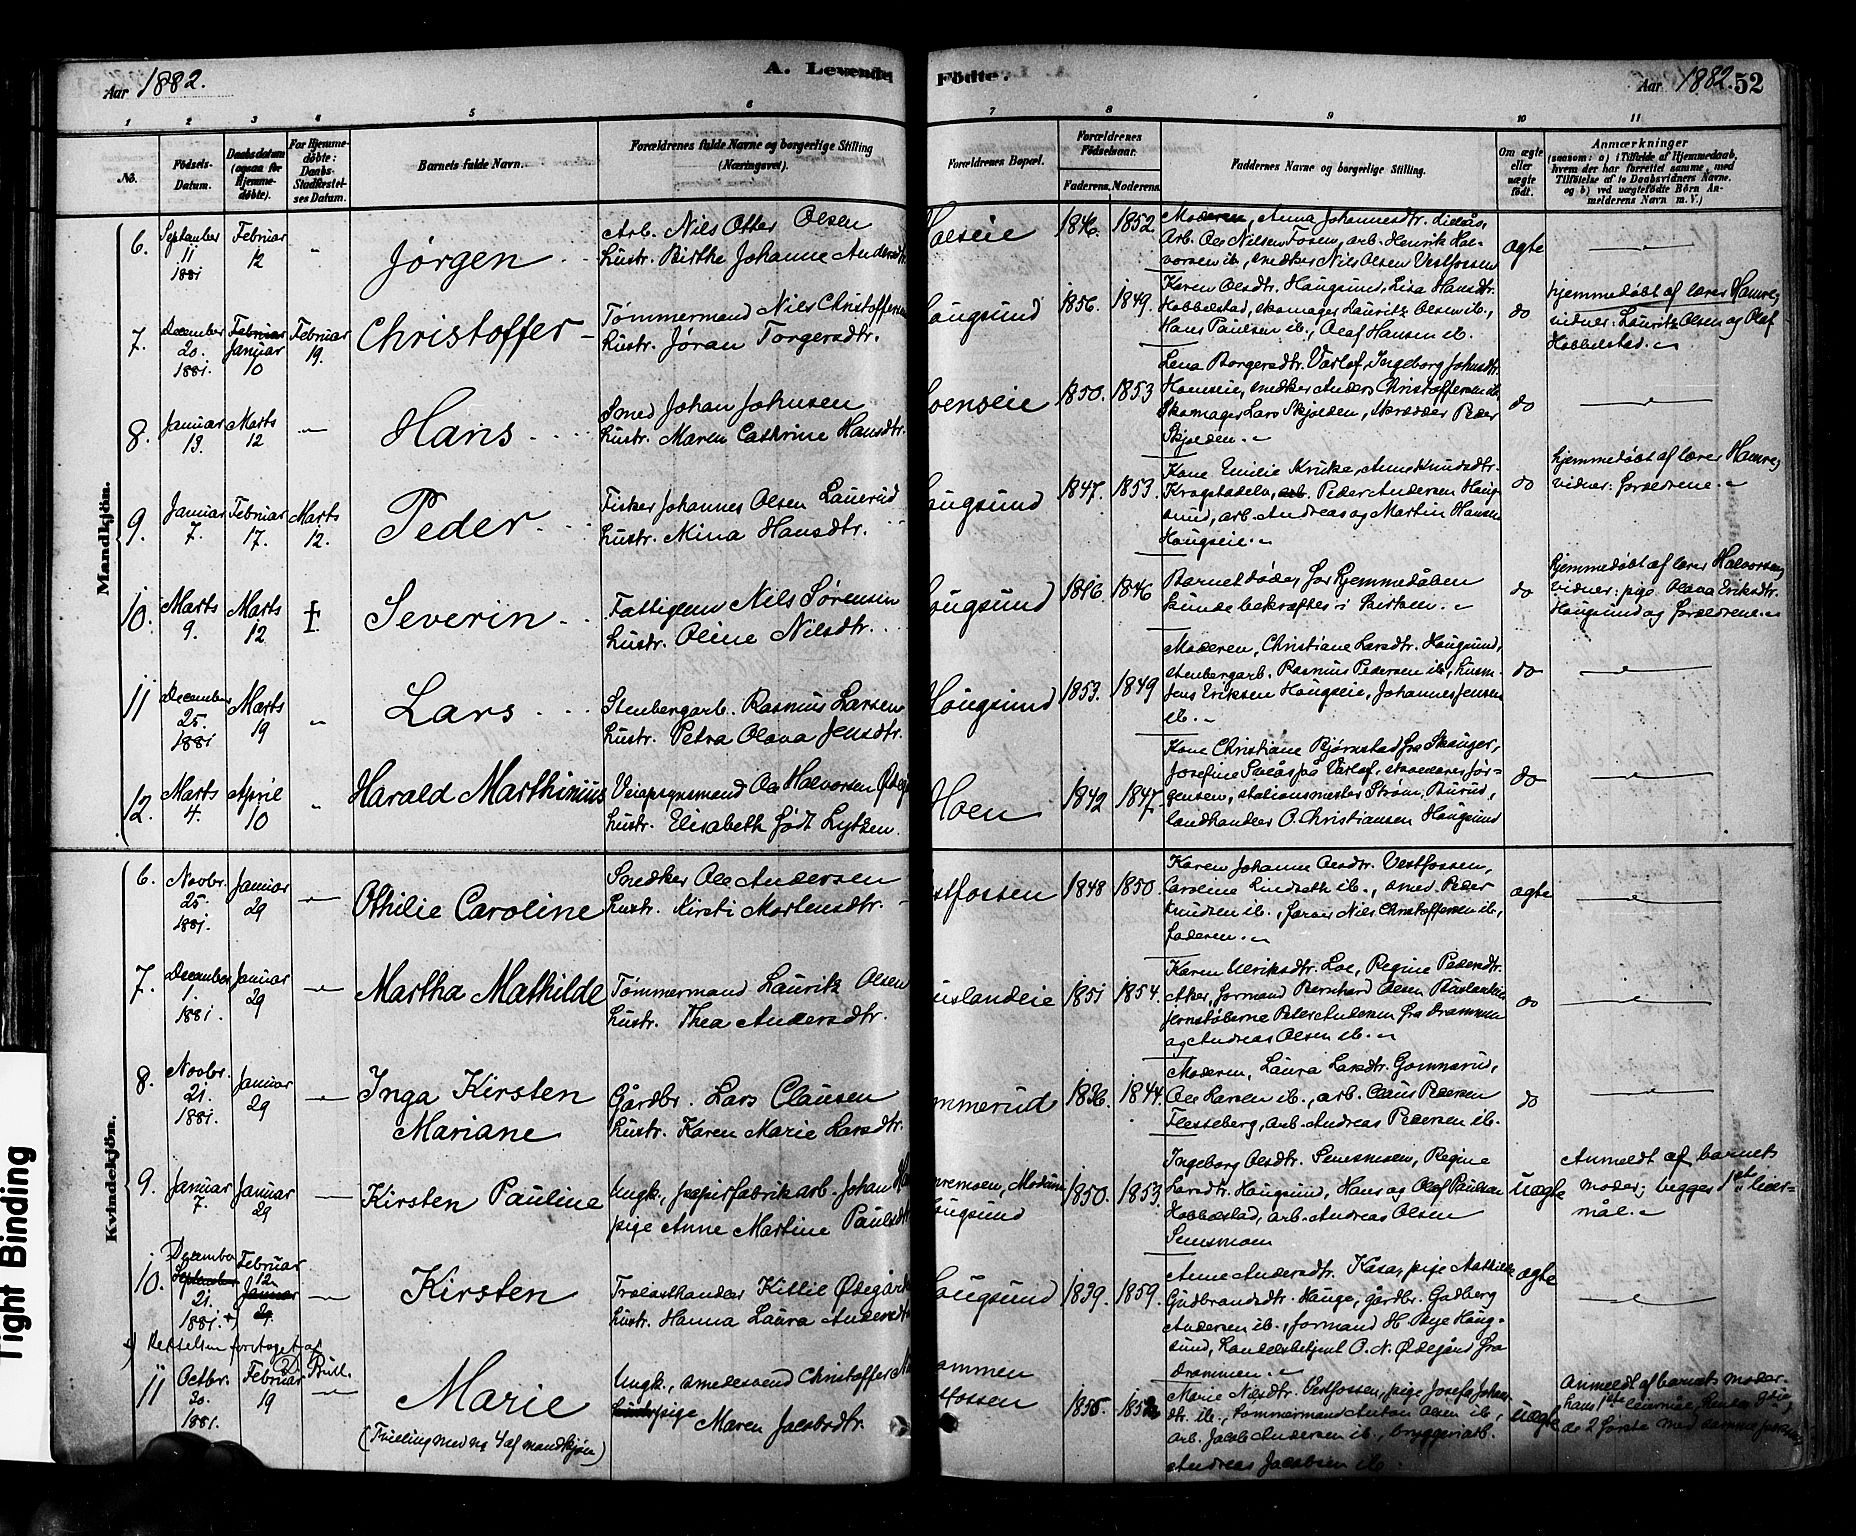 Aar 1882.
A. Levende
Födte.
Aar 1882. 52
1 2 3 4 5 6 7 8 9 10 11
No.
Födsels-Datum.
Daabsdatum (ogsaa for Hjemmedöbte).
For Hjemmedöbte: Daabs-Stadfæstelses Datum.
Barnets fulde Navn.
Forældrenes fulde Navne og borgerlige Stilling (Næringsvei).
Forældrenes Bopæl.
Forældrenes Födselsaar.
Faderens. Moderens.
Faddernes Navne og borgerlige Stilling.
Om ægte eller uægte födt.
Anmærkninger
(saasom: a) i Tilfælde af Hjemmedaab, hvem der har forrettet samme, med Tilföielse af to Daabsvidners Navne, og b) ved uægtefödte Börn Anmelderens Navn m. V.)
Mandkjön.
6. September 11 1881 Februar 12 " Jørgen
Arb. Nils Otter Olsen
Hustr. Birthe Johanne Andersdtr
Hoenseie 1846. 1852
Moderen, Anna Johannesdtr.
Arb. Ole Nilsen Fosen, arb. Henrik Hal-
vorsen ib., snedker Nils Olsen Vestfossen
ægte
7. December 20. 1881. Februar Januar 10 Februar 19. Christoffer
Tømmermand Nils Christoffersen
Hustr. Jøran Torgersdtr.
Hougsund 1856. 1849.
Karen Olsdtr. Hougsund, Lisa Hansdtr.
Hobbelstad, skomager Lauritz Olsen ib.,
Hans Paulsen ib., Olaf Hansen ib.
do
hjemmedøbt af lærer Hamre,
vidner: Lauritz Olsen og Olaf
Hobbelstad.
8. Januar 13. Marts 12 Hans
Smed Johan Johnsen
Hustr. Maren Cathrine Hansdtr.
oenseie 1850. 1853
Lena Borgersdtr. Varlo, Ingeborg Johnsdtr.
Hoenseie, snedker Anders Christoffersen ib.
Skomager Lars Skjolden, Skrædder Peder
Skjolden.
do
9. Januar 7. Februar 17. Marts 12. Peder
Fisker Johannes Olsen Lauerud
Hustr. Mina Hansdtr.
ougsund 1847. 1853.
Kone Emilie Kruke, Anne Knudsdtr.
Krogstadelv, arb. Peder Andersen Houg-
sund, arb. Andreas og Martin Hansen
Hougseie.
do
hjemmedøbt af lærer Hamre,
vidner: forældrene.
10. Marts 9. Marts 12 Severin
Fattiglem Nils Sørensen
Hustr. Oline Nilsdtr.
Hougsund 1816. 1846
Barnet døde, før hjemmedåben
kunde bekræftes i kirken.
do
hjemmedøbt af lærer Halvorsen,
vidner: pige Olava Eriksdtr.
Hougsund og forældrene.
11 December 25. 1881 Marts 19 " Lars
Stenbergarb. Rasmus Larsen
Hustr. Petra Olava Jensdtr.
Hougsund 1853. 1849
Moderen, Christiane Larsdtr. Hougsund,
stenbergarb. Rasmus Pedersen ib., husm.
Jens Eriksen Hougseie, Johannes Jensen
ib.
do
12. Marts 4. April 10 " Harald Marthinius
Hustr. Elisabeth født Lytzen.
Hoen 1842 1847.
Kone Christiane Bjørnstad fra Skouger,
Josefine
gensen, stationsmester Strøm, Burud,
landhandler O. Christiansen Hougsund
do
Kvindekjön.
6. Novbr. 25. 1881. Januar 29 Othilie Caroline
Snedker Ole Andersen
Hustr. Kirsti Mortensdtr.
stfossen 1848 1850.
Karen Johanne Olsdtr. Vestfossen,
Caroline Lindseth ib., smed Peder
Knudsen ib., farver Nils Christoffersen ib.,
faderen.
ægte
7. December 1. 1881. Januar 29 Martha Mathilde
Tømmermand Lauritz Olsen
Hustr. Thea Andersdtr.
uslandeie 1851 1854.
Karen Ulriksdtr. Loe, Regine Pedersdtr.
Aker, formand Bernhard Olsen
jernstøberne Peder Andersen fra Drammen
og Andreas Olsen ib.
do
8. Novbr. 21. 1881. Januar 29 Inga Kirsten Mariane
Gårdbr. Lars Clausen
Hustr. Karen Marie Larsdtr.
mmerud 1836. 1844.
Moderen, Laura Larsdtr. Gommerud,
Ole Larsen ib., arb. Claus Pedersen
Flesseberg, arb. Andreas Pedersen ib.
do
9. Januar 7. Januar 29 Kirsten Pauline
Ungk., papirfabrikarb. Johan
pige Anne Martine Paulsdtr
remoen, Modum
ougsund 1850. 1853.
Ingeborg Olsdtr. Semsmoen, Regine
Larsdtr. Hougsund, Hans og Olaf Paulsen
Hobbelstad, arb. Andreas Olsen
Semsmoen
uægte
Anmeldt af barnets
moder; begges 1ste leier-
mål.
10. December September 21. 1881.+ Februar 12. Januar 29. Kirsten
Trælasthandler Kittil Ødegård
Hustr. Hanna Laura Andersdtr
ougsund 1839. 1859.
Anne Andersdtr. Kasa, pige Mathilde
Gudbrandsdtr. Hauge, gårdbr. Gudberg
Andersen ib., formand H. Bye Houg-
sund, handelsbetjent O. N. Ødegård fra
Drammen.
ægte
+) Rettelsen foretaget af
11 Octbr. 30. 1881. Februar 19 Marie
(Tvilling med no 4 af mandkjøn)
Ungk., smedesvend Christoffer
Hustr. pige Maren Jacobsdtr.
ammen
fossen 1855.
Marie Nilsdtr. Vestfossen, pige Josefa Johans-
dtr. ib., tømmermand Anton Olsen ib.,
arb. Jacob Andersen ib., bryggeriarb.
Andreas Jacobsen ib.
uægte
Anmeldt af barnets moder.
hans 1ste leiermål, hendes 3die,
de 2 første med samme
Tight Binding